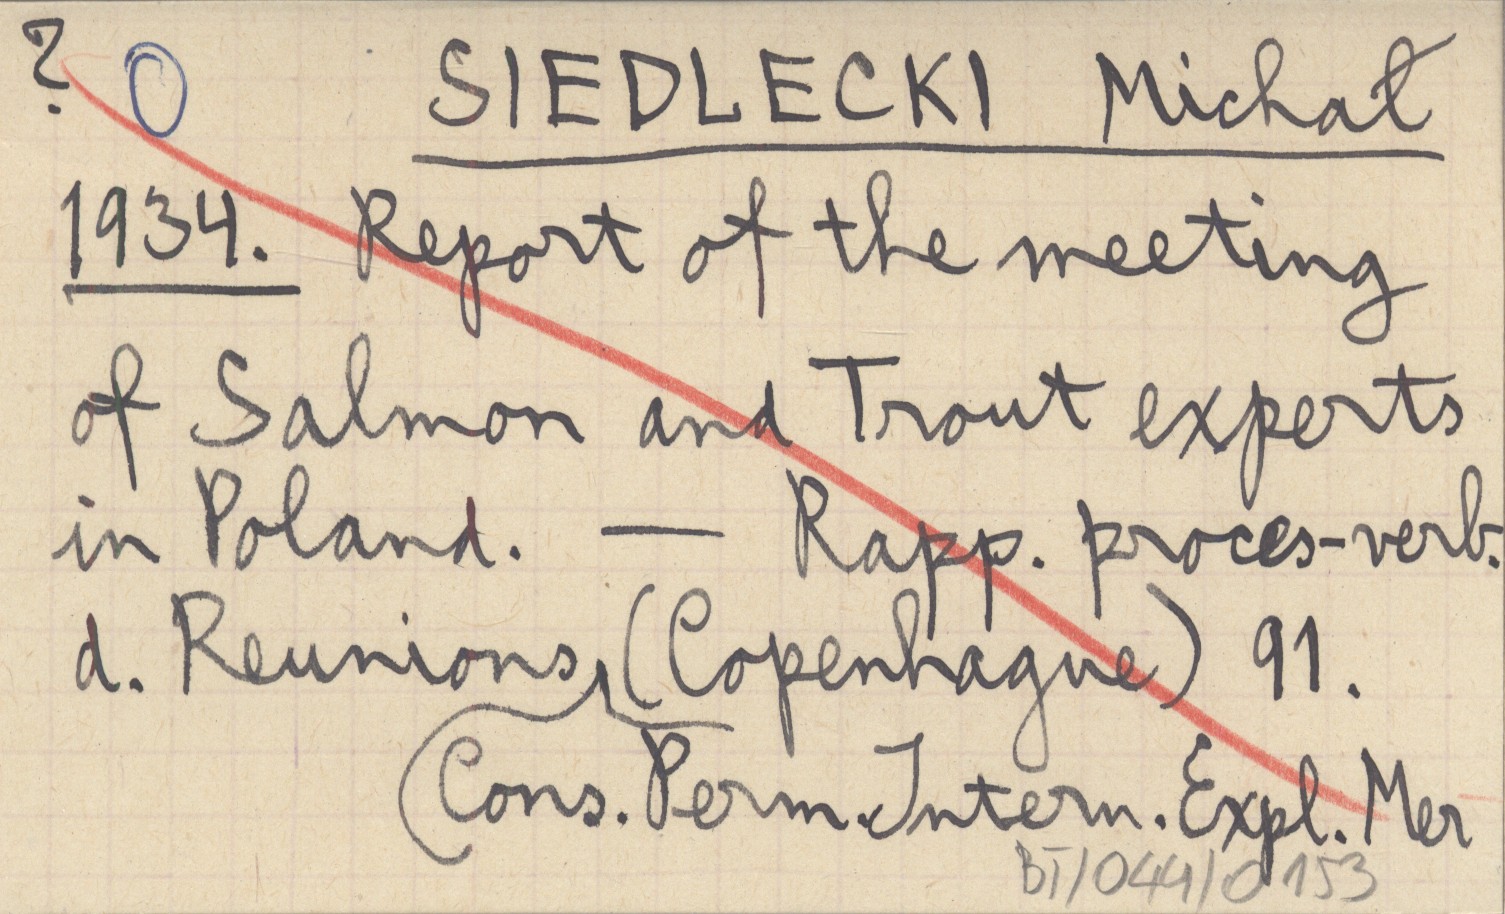 ? O SIEDLECKI Michał
1934. Report of the meeting
of Salmon and Trout experts
in Poland. — Rapp. proces-verb.
d. Reunions, (Copenhague) 91.
(Cons. Perm. Intern. Expl. Mer
BT/044/0153